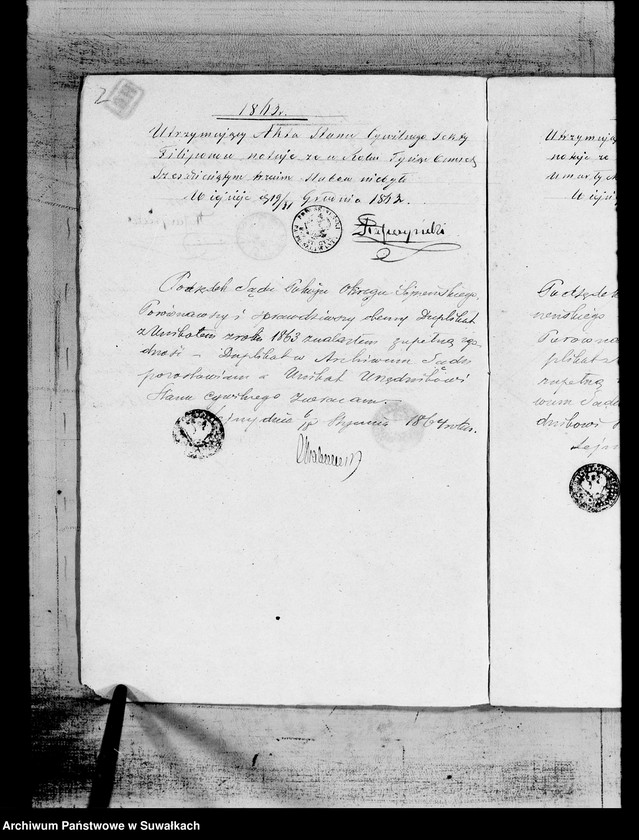 2
1863.
Utrzymujący Akta Stanu Cywilnego Sekty
Filiponów notuje że w Roku Tysiąc Ośmset
Sześćdziesiątym trzecim Ślubów niebyło
Grudnia 1863.
Podsędek Sądu Pokoju Okręgu Sejneńskiego
Porównawszy i sprawdziwszy obecny Duplikat
z Unikatem z roku 1863 znalazłem zupełną zgo
dność – Duplikat w Archiwum Sądu
pozostawiam a Unikat Urzędnikowi
Stanu cywilnego zwracam.–
dnia Stycznia 1864 roku.
Utrzymując
notuje że
Umarły
Podsędek
neńskiego
Porówna
plikat z
zupełną
wum Sądu
dnikowi
Sejn
Archiwum Państwowe w Suwałkach